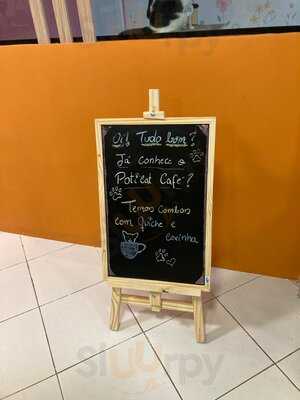 Oi! Tudo bom?
Já conhece o
Poticat Café?
Temos Combos
com Quiche e
coxinha
Slurpy